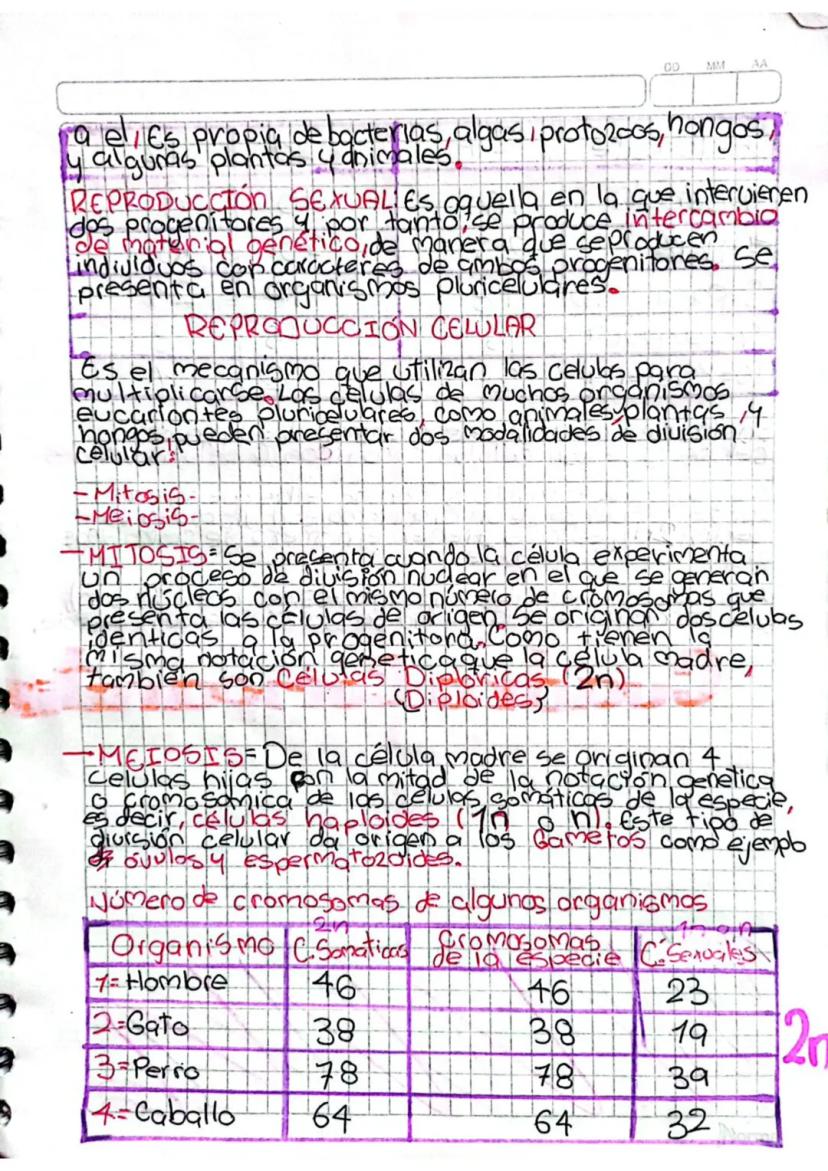 DD MM AA
a el, Es propia de bacterias, algas, protozoos, hongos,
y algunas plantas y animales.
REPRODUCCIÓN SEXUAL: Es aquella en la que intervienen
dos progenitores y, por tanto, se produce intercambio
de material genético, de manera que se producen
individuos con carácteres de ambos progenitores. Se
presenta en organismos pluricelulares.
REPRODUCCIÓN CELULAR
Es el mecanismo que utilizan las celulas para
multiplicarse. Las células de muchos organismos
eucariontes pluricelulares, como animales, plantas, y
hongos, pueden presentar dos modalidades de división
celular:
- Mitosis-
- Meiosis-
- MITOSIS= Se presenta cuando la célula experimenta
un proceso de división nuclear en el que se generan
dos núcleos con el mismo número de cromosomas que
presenta las células de origen. Se originan dos células
identicas a la progenitora. Como tienen la
misma notación genetica que la célula madre,
tambien son Células Diplóricas (2n)
{Diploides}
- MEIOSIS= De la célula madre se originan 4
celulas hijas con la mitad de la notación genetica
o cromosómica de las células somáticas de la especie,
es decir, células haploides (1n o n). Este tipo de
división celular da origen a los Gametos como ejemplo
óvulos y espermatozoides.
Número de cromosomas de algunos organismos
2n 1n o n
Organismo C. Somáticas Cromosomas de la especie C. Sexuales
1= Hombre 46 46 23
2= Gato 38 38 19
3= Perro 78 78 39
4= Caballo 64 64 32
2n
Norma